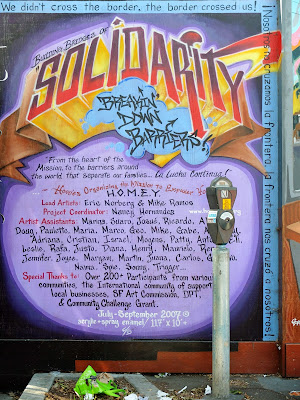 We didn't cross the border, the border crossed us!
¡Nosotros no cruzamos la frontera, la frontera nos cruzó a nosotros!
Building Bridges of
"SOLIDARITY
BREAKIN'
DOWN
BARRIERS!"
"From the heart of the
Mission, to the barriers around
the world that separate our families... La Lucha Continua!"
Homies Organizing the Mission to Empower
H.O.M.E.Y.
Lead Artists: Eric Norberg & Mike Ramos
Project Coordinator: Nancy Hernandez
Artist Assistants: Marina, Guaro, Josué, Ricardo,
Doug, Paulette, Mario, Marco, Geo, Mike, Gabe,
Adriana, Cristian, Israel, Mogens, Patty,
Leslie, Rafa, Justo, Diana, Henry, Mauricio,
Jennifer, Joyce, Morgan, Martin, Juana, Carlos,
Special Thanks to: Over 200+ Participants from various
communities, the International community of support
local businesses, SF Art Commission, DPT,
& Community Challenge Grant.
July - September 2007 ©
acrylic + spray enamel / 117' x 10'